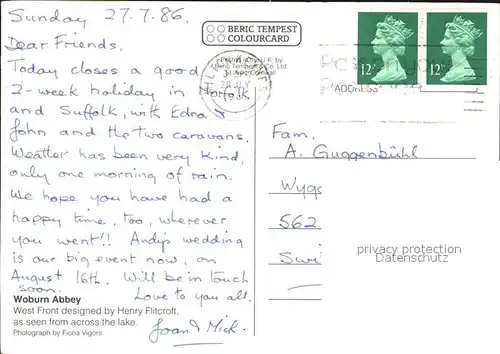 Sunday 27.7.86.
Dear Friends,
Today closes a good
2-week holiday in Norfolk
and Suffolk, with Edna &
John and the two caravans.
Weather has been very kind,
only one morning of rain.
We hope you have had a
happy time, too, wherever
you went!! Andy's wedding
is our big event now, on
August 16th. Will be in touch
soon. Love to you all.
Joan & Mick.
Woburn Abbey
West Front designed by Henry Flitcroft,
as seen from across the lake.
Photograph by Fiona Vigors
BERIC TEMPEST
COLOURCARD
Printed in the U.K. by
Beric Tempest & Co. Ltd.
St. Ives, Cornwall
28 JLY
1986
12P
12P
ADDRESS
Fam.
A. Guggenbühl
Wygs
562
Swi
privacy protection
Datenschutz